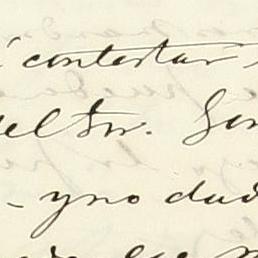 contestar
del Sr. Gen
- y no dud